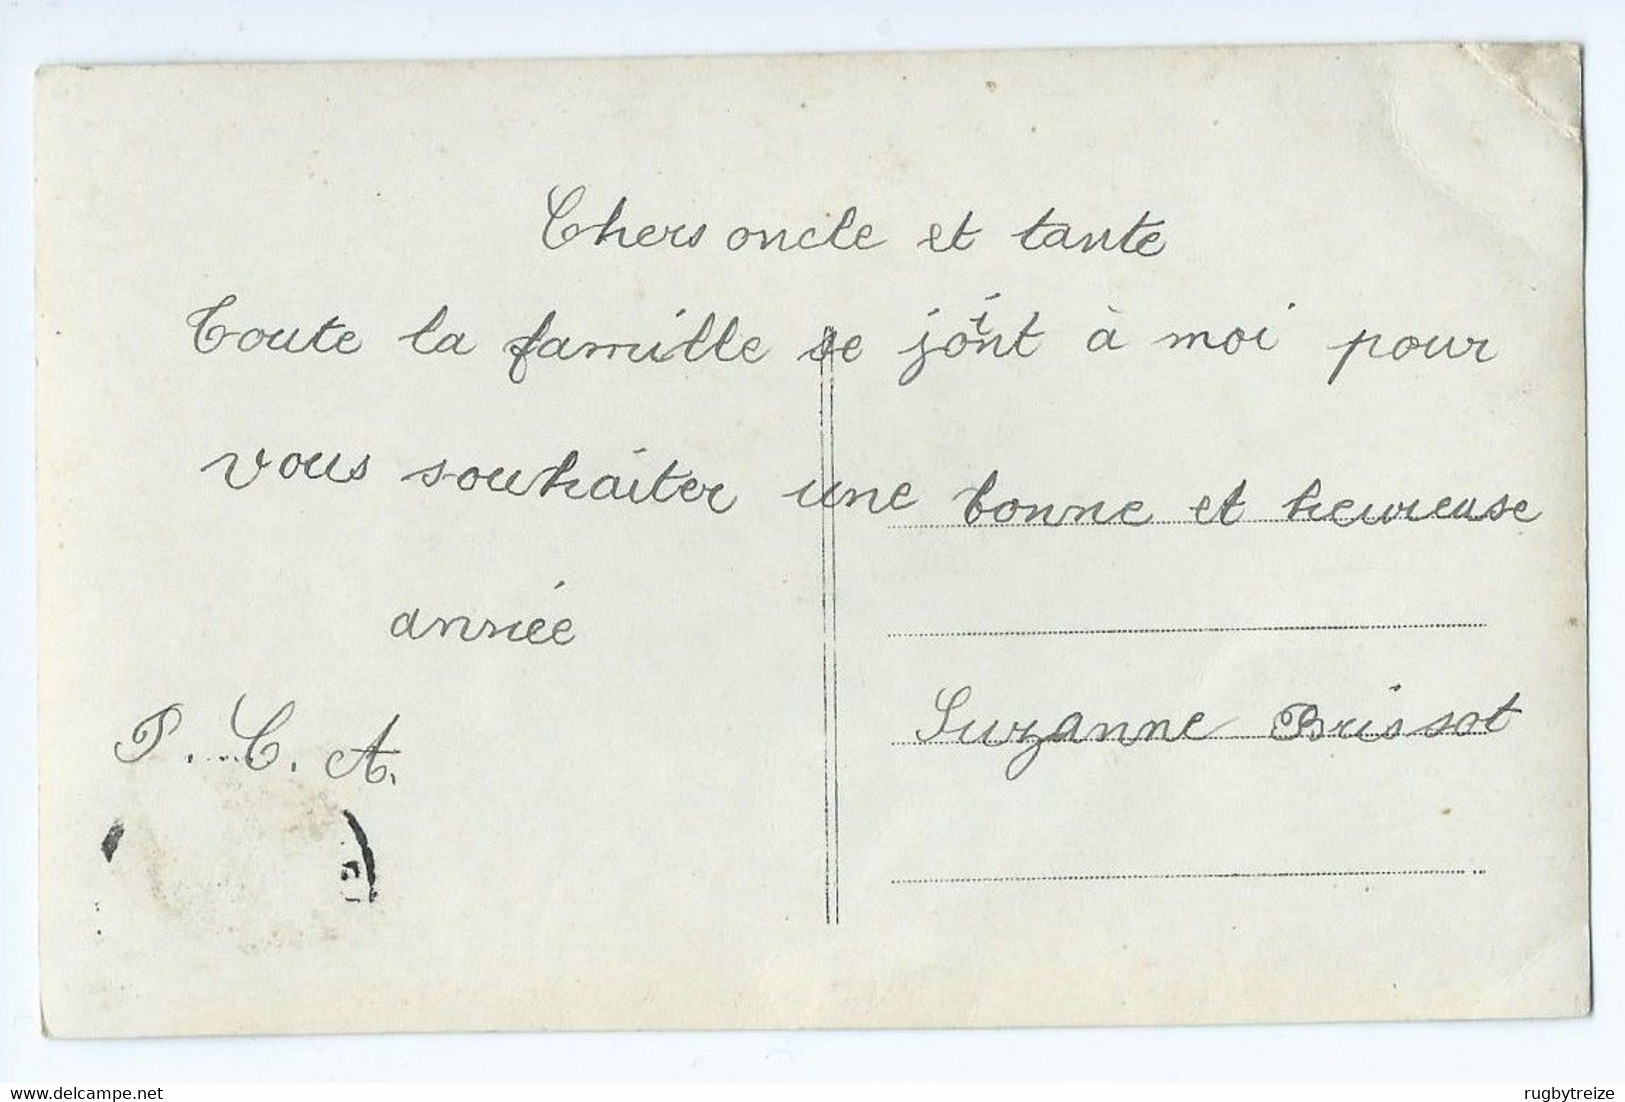 Chers oncle et tante
Toute la famille se joint à moi pour
vous souhaiter une bonne et heureuse
année
P. C. A.
Suzanne Brissot
delcampe.net
rugbytreize